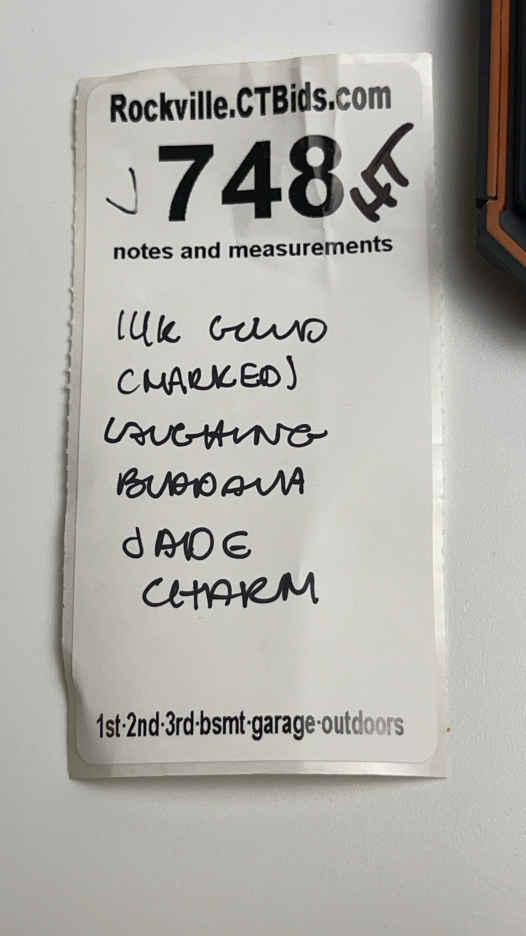 Rockville.CTBids.com
748 HT
notes and measurements
14K GOLD
(MARKED)
LAUGHING
BUDDAHA
JADE
CHARM
1st·2nd·3rd·bsmt·garage·outdoors